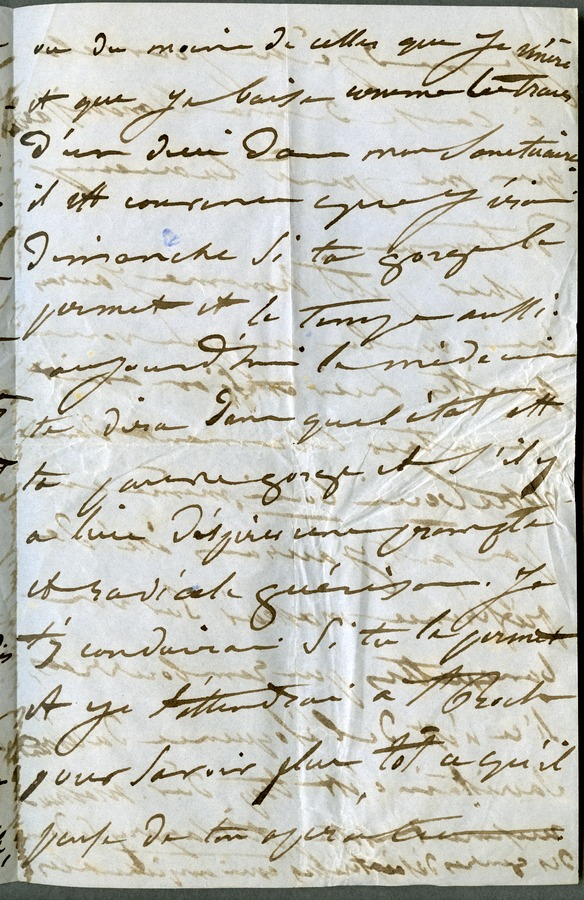 ou du moins de celles que je vénère
et que je baise comme les traces
d'un dieu dans mon sanctuaire
il est convenu que j'irai
dimanche si ta gorge le
permet et le temps aussi.
aujourd'hui le médecin
te dira dans quel état est
ta pauvre gorge et s'il y
a lieu d'espérer une prompte
et radicale guérison. Je
t'y conduirai si tu le permet
et je t'attendrai à St Roch
pour savoir plus tôt ce qu'il
pense de ton opération